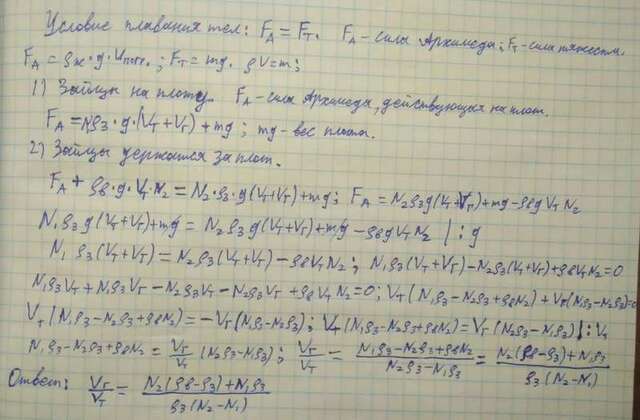 Условие плавания тел: F_A = F_T. F_A - сила Архимеда; F_T - сила тяжести.
F_A = ρ_ж · g · V_погр.; F_T = mg. ρV = m;
1) Зайцы на плоту. F_A - сила Архимеда, действующих на плот.
F_A = N₁ρ_з · g · (V_т + V_г) + mg; mg - вес плота.
2) Зайцы держатся за плот.
F_A + ρ_в · g · V_т · N₂ = N₂ · ρ_з · g (V_т + V_г) + mg; F_A = N₂ρ_з g (V_т + V_г) + mg - ρ_в g V_т N₂
N₁ρ_з g (V_т + V_г) + mg = N₂ρ_з g (V_т + V_г) + mg - ρ_в g V_т N₂ | : g
N₁ρ_з (V_т + V_г) = N₂ρ_з (V_т + V_г) - ρ_в V_т N₂; N₁ρ_з (V_т + V_г) - N₂ρ_з (V_т + V_г) + ρ_в V_т N₂ = 0
N₁ρ_з V_т + N₁ρ_з V_г - N₂ρ_з V_т - N₂ρ_з V_г + ρ_в V_т N₂ = 0; V_т (N₁ρ_з - N₂ρ_з + ρ_в N₂) + V_г (N₁ρ_з - N₂ρ_з) = 0
V_т (N₁ρ_з - N₂ρ_з + ρ_в N₂) = -V_г (N₁ρ_з - N₂ρ_з); V_т (N₁ρ_з - N₂ρ_з + ρ_в N₂) = V_г (N₂ρ_з - N₁ρ_з) | : V_т
N₁ρ_з - N₂ρ_з + ρ_в N₂ = V_г/V_т (N₂ρ_з - N₁ρ_з); V_г/V_т = (N₁ρ_з - N₂ρ_з + ρ_в N₂)/(N₂ρ_з - N₁ρ_з) = (N₂(ρ_в - ρ_з) + N₁ρ_з)/(ρ_з (N₂ - N₁))
Ответ: V_г/V_т = (N₂(ρ_в - ρ_з) + N₁ρ_з)/(ρ_з (N₂ - N₁))